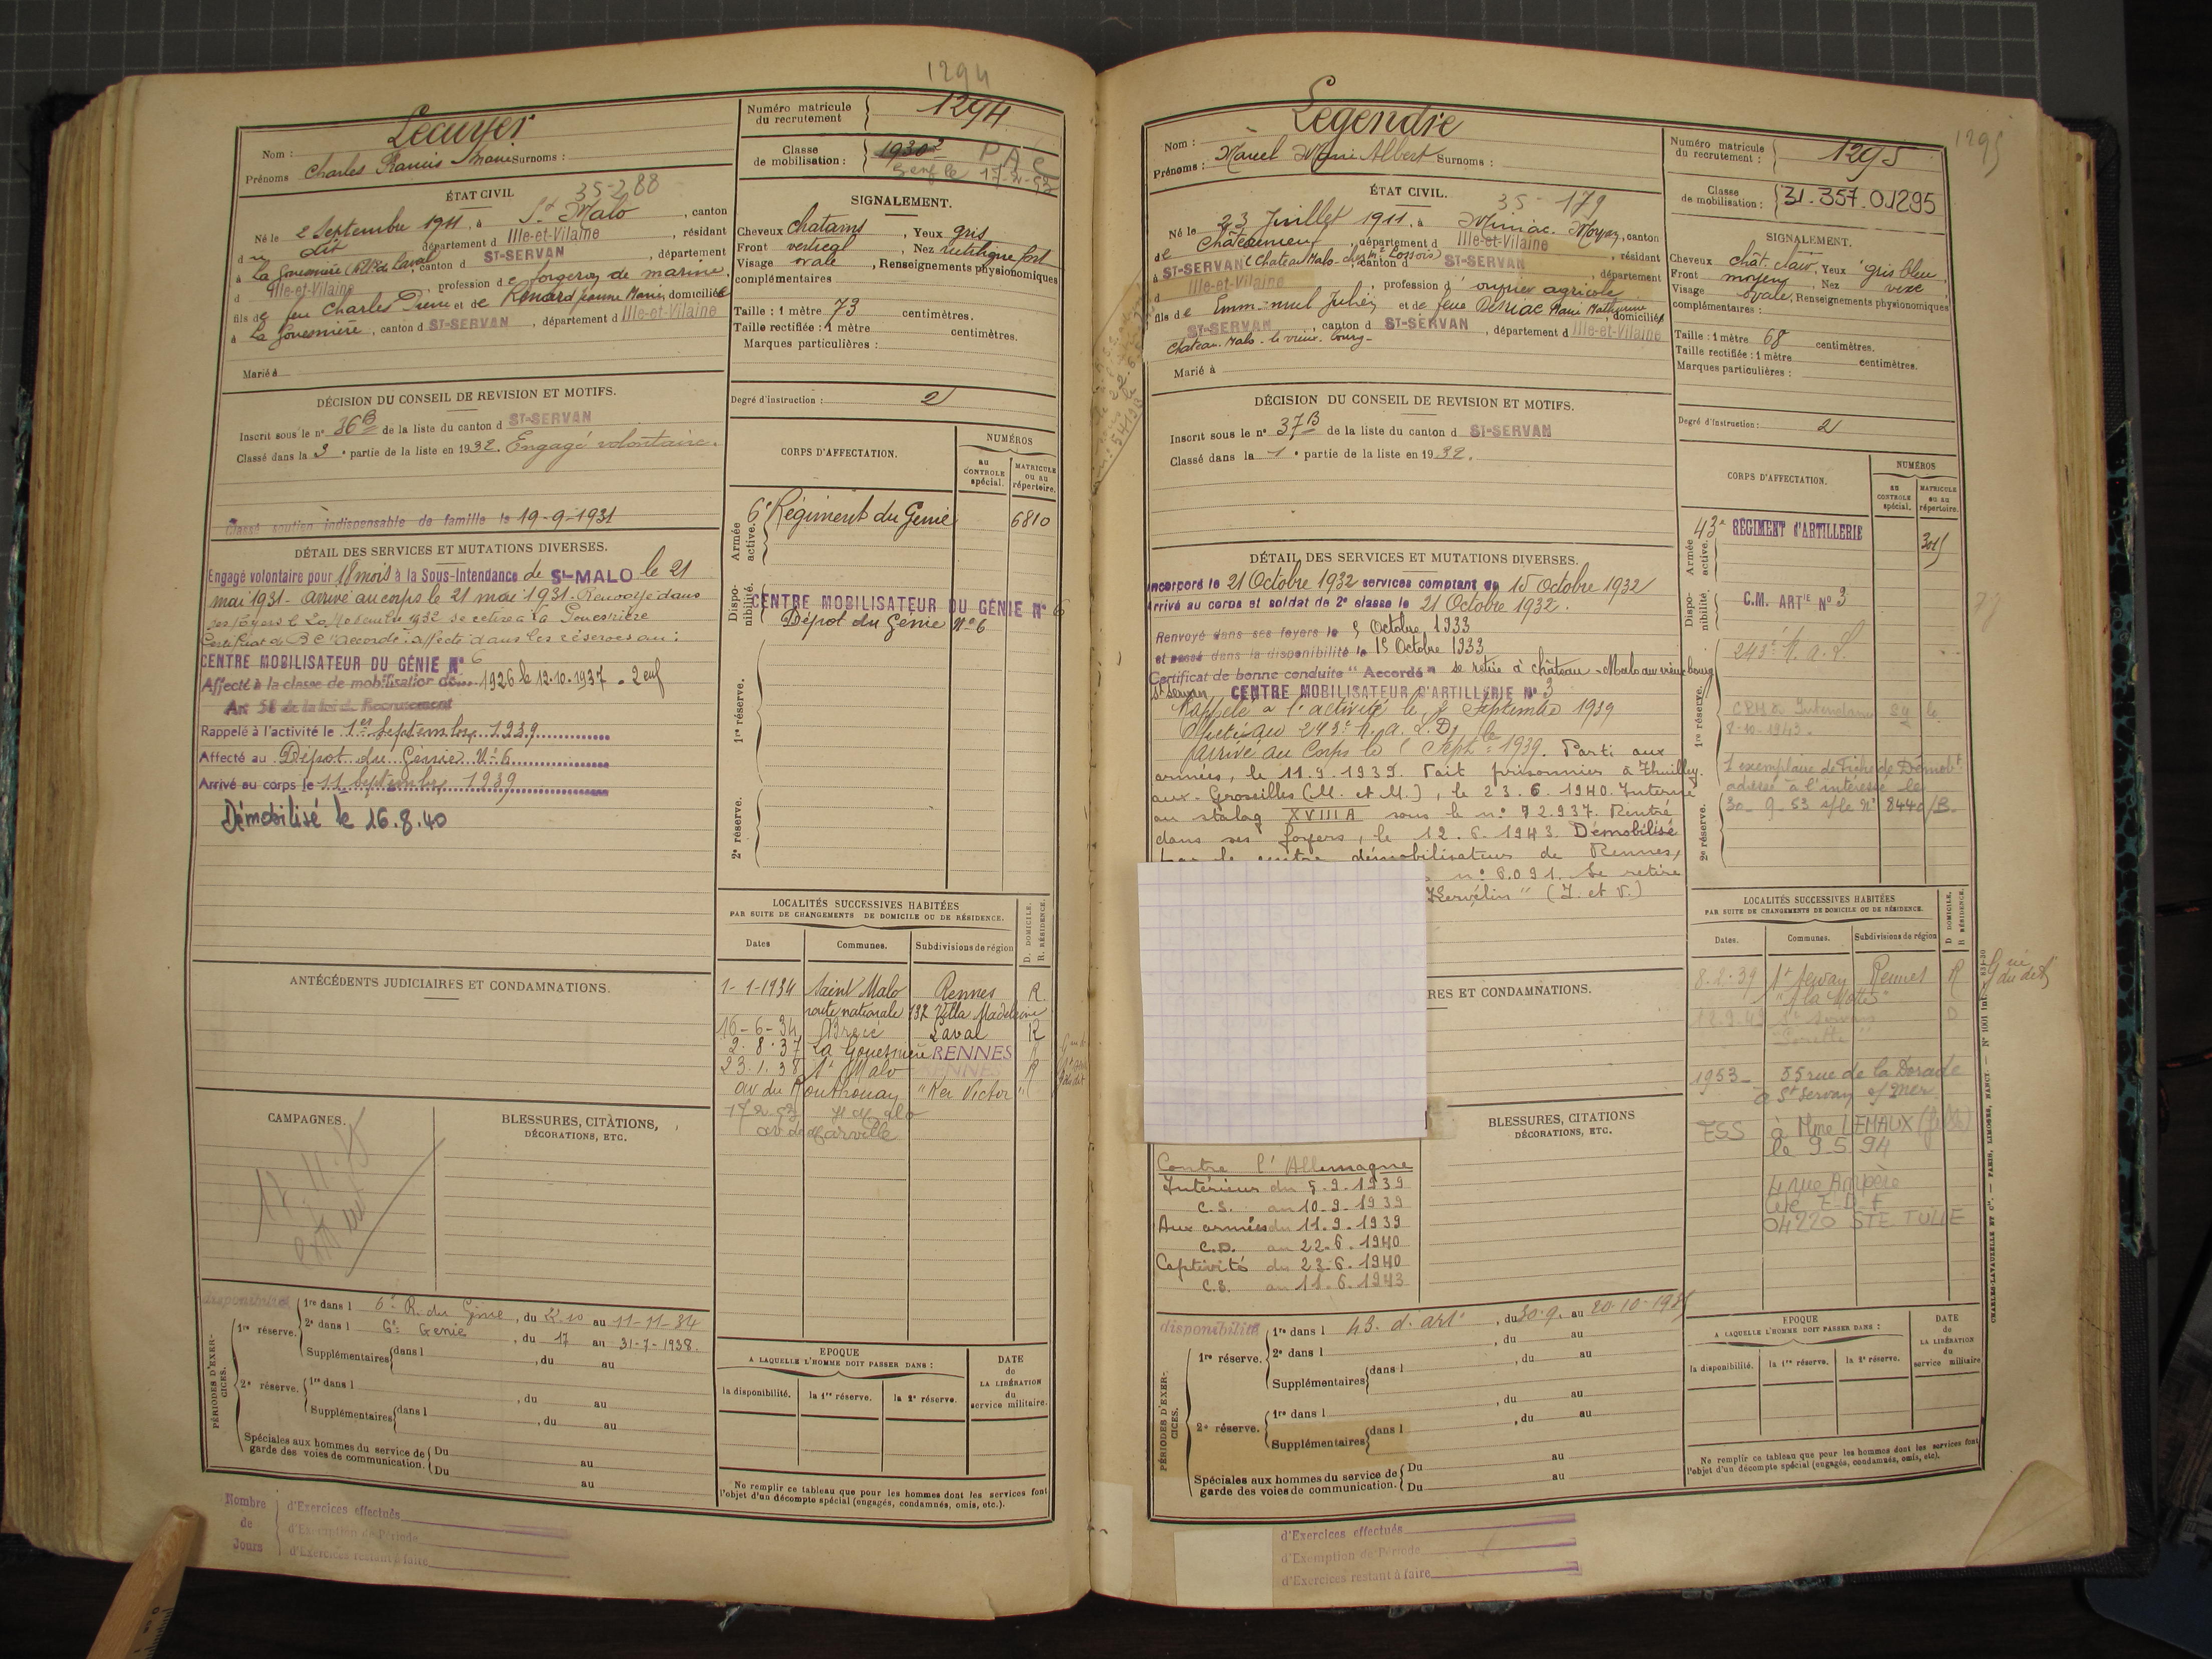 1294
Nom : Lecuyer
Prénoms Charles Francis Marie Surnoms :
Numéro matricule du recrutement 1294
Classe de mobilisation : 1930²
PAC
17-2-53
ÉTAT CIVIL
35-288
Né le 2 Septembre 1911, à St Malo, canton
d u dit département d Ille-et-Vilaine, résidant
à La Gouesnière, canton d ST-SERVAN, département
d Ille-et-Vilaine, profession de forgeron de marine
fils de feu Charles Pierre et de Renard Jeanne Marie, domiciliée
à La Gouesnière, canton d ST-SERVAN, département d Ille-et-Vilaine
Marié à
SIGNALEMENT.
Cheveux chatains, Yeux gris
Front vertical, Nez rectiligne fort
Visage ovale, Renseignements physionomiques
complémentaires
Taille : 1 mètre 73 centimètres.
Taille rectifiée : 1 mètre centimètres.
Marques particulières :
Degré d'instruction : 2
DÉCISION DU CONSEIL DE REVISION ET MOTIFS.
Inscrit sous le n° 36 B de la liste du canton d ST-SERVAN
Classé dans la 3e partie de la liste en 1932. Engagé volontaire.
Classé soutien indispensable de famille le 19-9-1931
DÉTAIL DES SERVICES ET MUTATIONS DIVERSES.
Engagé volontaire pour 18 mois à la Sous-Intendance de St-MALO le 21
mai 1931 - arrivé au corps le 21 mai 1931. Renvoyé dans
ses foyers le 1932 se retire à la Gouesnière
Certificat de B C "accordé". affecté dans les réserves au :
CENTRE MOBILISATEUR DU GÉNIE N° 6
Affecté à la classe de mobilisation de 1926 le 12.10.1937 - 2 enf
Art 58 de la loi de Recrutement
Rappelé à l'activité le 1er septembre 1939
Affecté au Dépôt du Génie N° 6
Arrivé au corps le 11 septembre 1939
Démobilisé le 16.8.40
CORPS D'AFFECTATION.
NUMÉROS
au CONTROLE spécial.
MATRICULE ou au répertoire.
Armée active.
6e Régiment du Génie 6810
Disponibilité.
CENTRE MOBILISATEUR DU GÉNIE N° 6
Dépôt du Génie N° 6
1re réserve.
2e réserve.
ANTÉCÉDENTS JUDICIAIRES ET CONDAMNATIONS.
LOCALITÉS SUCCESSIVES HABITÉES
PAR SUITE DE CHANGEMENTS DE DOMICILE OU DE RÉSIDENCE.
D. DOMICILE.
R. RÉSIDENCE.
Dates Communes. Subdivisions de région
1-1-1934 Saint Malo Rennes R.
route nationale 132 Villa Madeleine
16-6-34 Laval R
2.8.37 La Gouesnière RENNES R
23.1.38 St Malo RENNES R
av du Routhouan "Ker Victor"
17-2-53 St Malo
av de Marville
CAMPAGNES.
BLESSURES, CITATIONS,
DÉCORATIONS, ETC.
PÉRIODES D'EXERCICES.
disponibilité
1re réserve.
1re dans l 6e R. du Génie, du 22.10 au 11-11-34
2e dans l 6e Génie, du 17 au 31-7-1938.
Supplémentaires dans l , du au
2e réserve.
1re dans l , du au
Supplémentaires dans l , du au
Spéciales aux hommes du service de garde des voies de communication.
Du au
Du au
EPOQUE
A LAQUELLE L'HOMME DOIT PASSER DANS :
la disponibilité. la 1re réserve. la 2e réserve.
DATE de LA LIBÉRATION du service militaire.
Ne remplir ce tableau que pour les hommes dont les services font
l'objet d'un décompte spécial (engagés, condamnés, omis, etc.).
Nombre de Jours
d'Exercices effectués
d'Exemption de Période
d'Exercices restant à faire
1295
Nom : Legendre
Prénoms : Marcel Marie Albert Surnoms :
Numéro matricule du recrutement : 1295
Classe de mobilisation : 31.357.01295
ÉTAT CIVIL.
35-179
Né le 23 Juillet 1911, à Miniac-Morvan, canton
de Châteauneuf, département d Ille-et-Vilaine, résidant
à ST-SERVAN, canton d ST-SERVAN, département
d Ille-et-Vilaine, profession d' ouvrier agricole
fils de Emmanuel Julien et de feue Marie Mathurine, domicilié
ST-SERVAN, canton d ST-SERVAN, département d Ille-et-Vilaine
Chateau-Malo - le vieux-bourg -
Marié à
SIGNALEMENT.
Cheveux chât. clair, Yeux gris bleu
Front moyen, Nez vexe
Visage ovale, Renseignements physionomiques
complémentaires :
Taille : 1 mètre 68 centimètres.
Taille rectifiée : 1 mètre centimètres.
Marques particulières :
Degré d'instruction : 2
DÉCISION DU CONSEIL DE REVISION ET MOTIFS.
Inscrit sous le n° 37 B de la liste du canton d ST-SERVAN
Classé dans la 1e partie de la liste en 1932.
DÉTAIL DES SERVICES ET MUTATIONS DIVERSES.
Incorporé le 21 Octobre 1932 services comptant du 15 Octobre 1932
Arrivé au corps et soldat de 2e classe le 21 Octobre 1932.
Renvoyé dans ses foyers le 5 Octobre 1933
et passé dans la disponibilité le 15 Octobre 1933
Certificat de bonne conduite "Accordé" se retire à château-Malo au vieux bourg
St Servan CENTRE MOBILISATEUR D'ARTILLERIE N° 3
Rappelé à l'activité le Septembre 1939
Affecté au 243e R.A.L.D.
Arrivé au Corps le Septbre 1939. Parti aux
armées, le 11.9.1939. Fait prisonnier à Thuilley-
aux-Groseilles (M. et M.), le 23.6.1940. Interné
au stalag XVIII A sous le n° 72.937. Rentré
dans ses foyers, le 12.6.1943. Démobilisé
par le centre démobilisateur de Rennes,
n° 6.091. Se retire
Kervélin" (I. et V.)
CORPS D'AFFECTATION.
NUMÉROS
au CONTROLE spécial.
MATRICULE ou au répertoire.
Armée active.
43e RÉGIMENT D'ARTILLERIE
Disponibilité.
C.M. ARTIE N° 3
1re réserve.
243e R.A.L.
8-10-1943.
1 exemplaire de Fiche de Démobt
adressé à l'intéressé le
30-9-53 s/le N° 8440/B-
2e réserve.
RES ET CONDAMNATIONS.
LOCALITÉS SUCCESSIVES HABITÉES
PAR SUITE DE CHANGEMENTS DE DOMICILE OU DE RÉSIDENCE.
D. DOMICILE.
R. RÉSIDENCE.
Dates. Communes. Subdivisions de région
8.2.39 St Servan Rennes R
"la Motte"
St Servan D
1953 - 55 rue de la Dorade
à St Servan s/mer
ESS à Mme LEMAUX (fille)
le 9.5.94
4 rue Ampère
Cité E-D-F
04220 STE TULLE
BLESSURES, CITATIONS
DÉCORATIONS, ETC.
Contre l'Allemagne
Intérieur du 5.9.1939
C.S. au 10-9-1939
Aux armées du 11.9.1939
C.D. au 22.6.1940
Captivité du 23.6.1940
C.S. au 11.6.1943
PÉRIODES D'EXERCICES.
disponibilité
1re réserve.
1re dans l 43e d'arti, du 30.9. au 20-10-1935
2e dans l , du au
Supplémentaires dans l , du au
2e réserve.
1re dans l , du au
Supplémentaires dans l , du au
Spéciales aux hommes du service de garde des voies de communication.
Du au
Du au
EPOQUE
A LAQUELLE L'HOMME DOIT PASSER DANS :
la disponibilité. la 1re réserve. la 2e réserve.
DATE de LA LIBÉRATION du service militaire
Ne remplir ce tableau que pour les hommes dont les services font
l'objet d'un décompte spécial (engagés, condamnés, omis, etc.).
CHARLES-LAVAUZELLE ET Cie. — PARIS, LIMOGES, NANCY. — N° 1001 int.
d'Exercices effectués
d'Exemption de Période
d'Exercices restant à faire